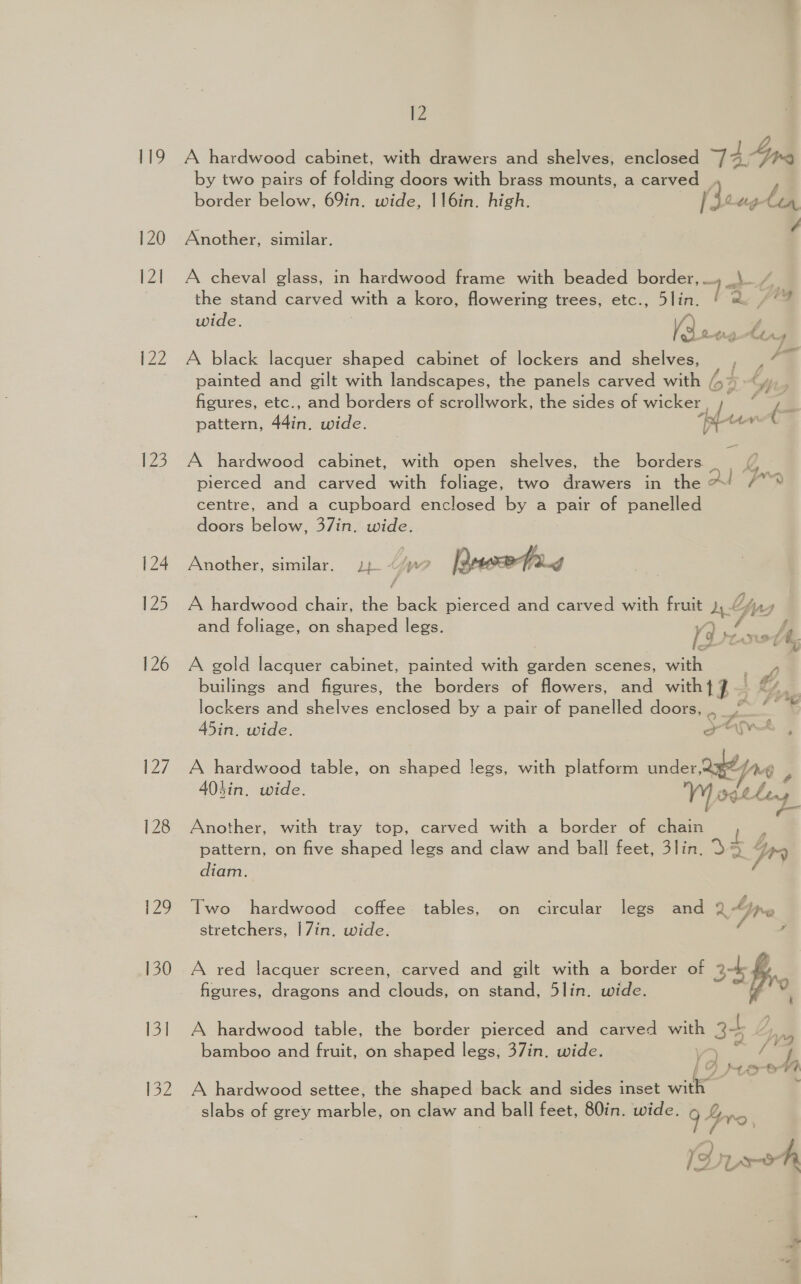 12
119 A hardwood cabinet, with drawers and shelves, enclosed 74 Gns
by two pairs of folding doors with brass mounts, a carved
border below, 69in. wide, 116in. high.
120 Another, similar.
121 A cheval glass, in hardwood frame with beaded border,
the stand carved with a koro, flowering trees, etc., 51in.
wide.
122 A black lacquer shaped cabinet of lockers and shelves,
painted and gilt with landscapes, the panels carved with
figures, etc., and borders of scrollwork, the sides of wicker
pattern, 44in. wide.
123 A hardwood cabinet, with open shelves, the borders
pierced and carved with foliage, two drawers in the
centre, and a cupboard enclosed by a pair of panelled
doors below, 37in. wide.
124 Another, similar.
125 A hardwood chair, the back pierced and carved with fruit
and foliage, on shaped legs.
126 A gold lacquer cabinet, painted with garden scenes, with
builings and figures, the borders of flowers, and with
lockers and shelves enclosed by a pair of panelled doors,
45in. wide.
127 A hardwood table, on shaped legs, with platform under,
40½in. wide.
128 Another, with tray top, carved with a border of chain
pattern, on five shaped legs and claw and ball feet, 31in.
diam.
129 Two hardwood coffee tables, on circular legs and 2 Gns
stretchers, 17in. wide.
130 A red lacquer screen, carved and gilt with a border of
figures, dragons and clouds, on stand, 51in. wide.
131 A hardwood table, the border pierced and carved with
bamboo and fruit, on shaped legs, 37in. wide.
132 A hardwood settee, the shaped back and sides inset with
slabs of grey marble, on claw and ball feet, 80in. wide. 9 Gns